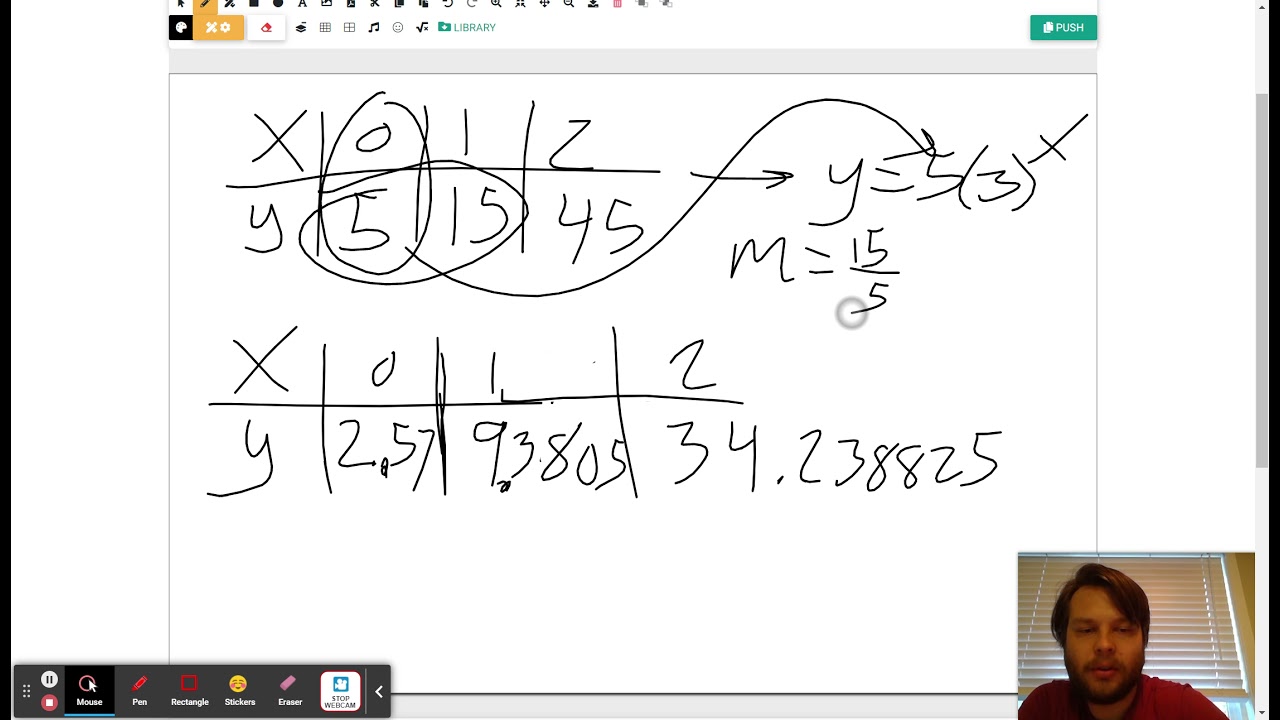 LIBRARY
PUSH
X 0 1 2
y 5 15 45
y = 5(3)^x
m = 15/5
X 0 1 2
y 2.57 9.3805 34.238825
Mouse Pen Rectangle Stickers Eraser STOP WEBCAM